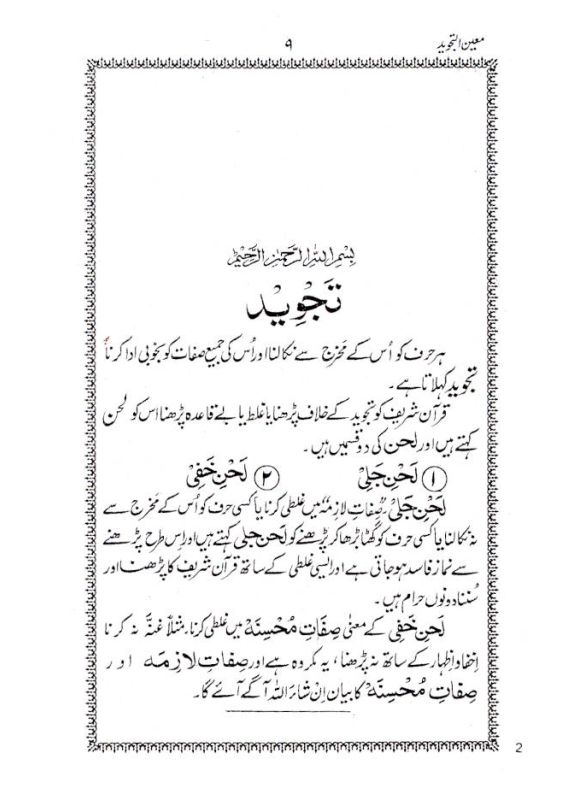 معین التجوید
۹
بِسْمِ اللّٰهِ الرَّحْمٰنِ الرَّحِيْمِ
تَجْوِیْد
ہر حرف کو اُس کے مَخرج سے نکالنا اور اُس کی جمیع صفات کو بخوبی ادا کرنا
تجوید کہلاتا ہے۔
قرآن شریف کو تجوید کے خلاف پڑھنا یا غلط یا بے قاعدہ پڑھنا اس کو لحن
کہتے ہیں اور لحن کی دو قسمیں ہیں۔
۱ لَحْنِ جَلِیْ ۲ لَحْنِ خَفِیْ
لَحْنِ جَلِیْ۔ صِفاتِ لازِمَہ میں غلطی کرنا یا کسی حرف کو اُس کے مَخرج سے
نہ نکالنا یا کسی حرف کو گھٹا بڑھا کر پڑھنے کو لَحنِ جلی کہتے ہیں اور اِس طرح پڑھنے
سے نماز فاسد ہو جاتی ہے اور ایسی غلطی کے ساتھ قرآن شریف کا پڑھنا اور
سُننا دونوں حرام ہیں۔
لَحنِ خَفِی کے معنیٰ صِفَاتِ مُحْسِنَہ میں غلطی کرنا۔ مثلاً غنّہ نہ کرنا
اِخفا و اِظہار کے ساتھ نہ پڑھنا، یہ مکروہ ہے اور صِفاتِ لازِمَہ اور
صِفَاتِ مُحْسِنَہ کا بیان اِنْ شاءَ اللّٰہ آگے آئے گا۔
2